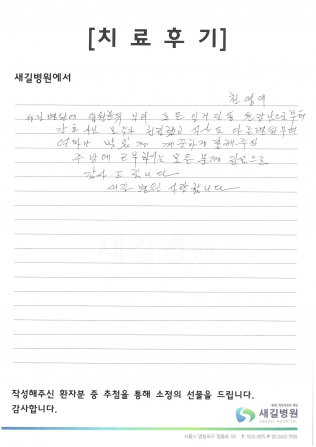 [치료후기]
새길병원에서
천영애
새길병원에 입원한뒤 부터 모든 일거일동 원장님으로부터
간호사님 모두가 친절했고 식사도 다른병원부터
얼마나 맛있게 깨끗하게 정해주신
주방에 근무하시는 모든 분께 진심으로
감사 드립니다
새길 병원 사랑합니다
새길병원
작성해주신 환자분 중 추첨을 통해 소정의 선물을 드립니다.
감사합니다.
새길병원
SAEGIL HOSPITAL